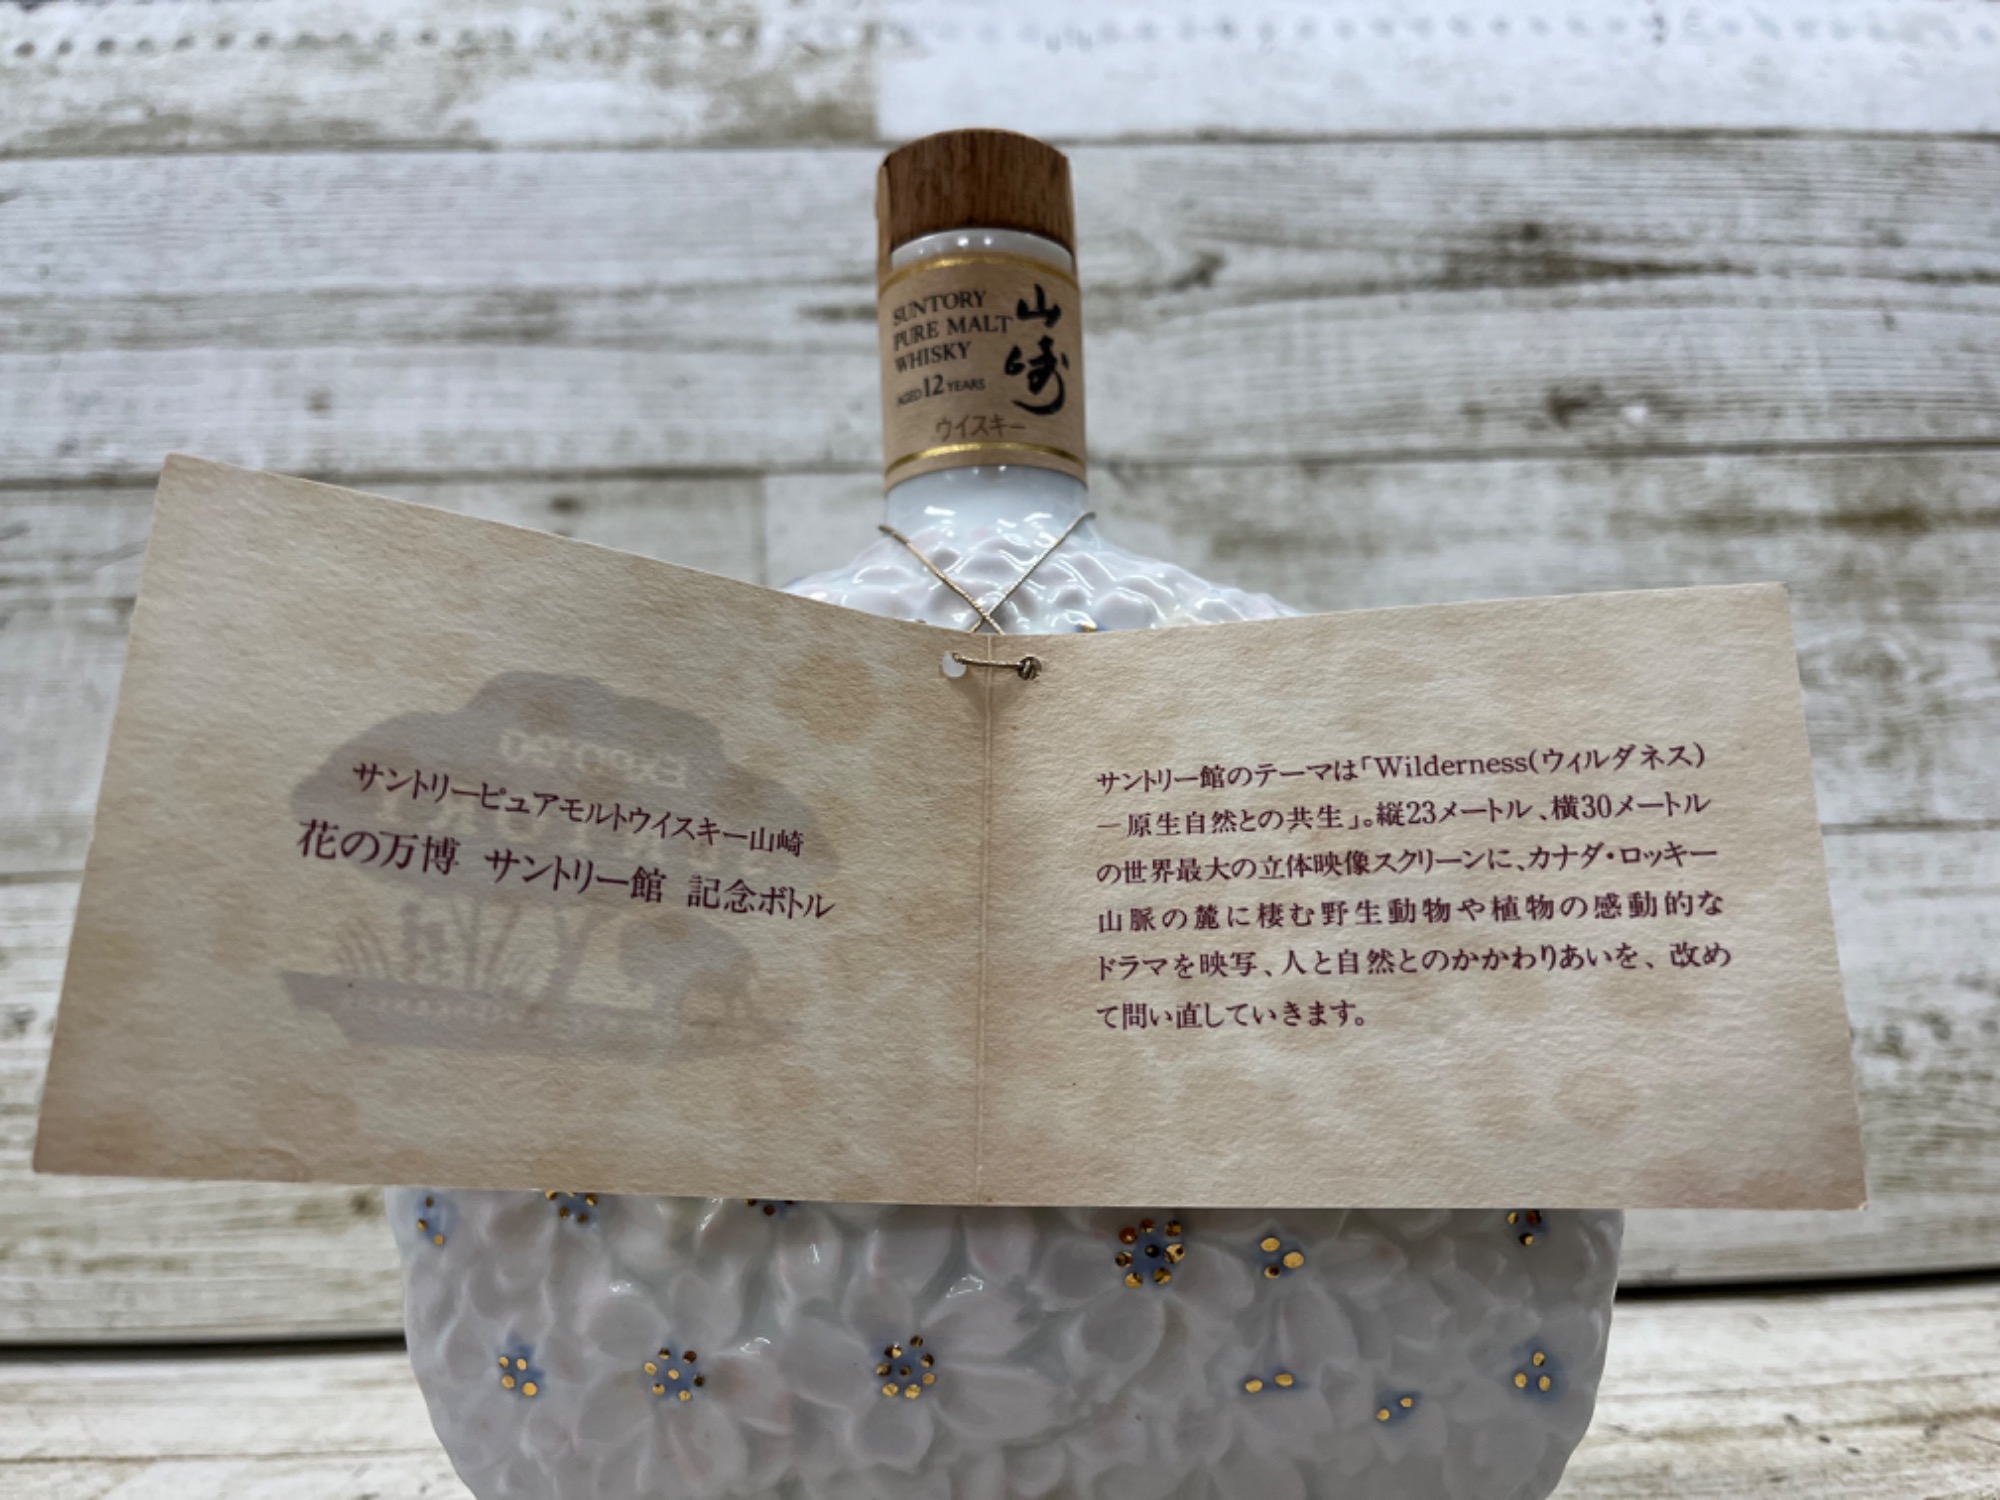 SUNTORY
PURE MALT
WHISKY
AGED 12 YEARS
山崎
ウイスキー
サントリーピュアモルトウイスキー山崎
花の万博 サントリー館 記念ボトル
サントリー館のテーマは「Wilderness(ウィルダネス)
―原生自然との共生」。縦23メートル、横30メートル
の世界最大の立体映像スクリーンに、カナダ・ロッキー
山脈の麓に棲む野生動物や植物の感動的な
ドラマを映写、人と自然とのかかわりあいを、改め
て問い直していきます。